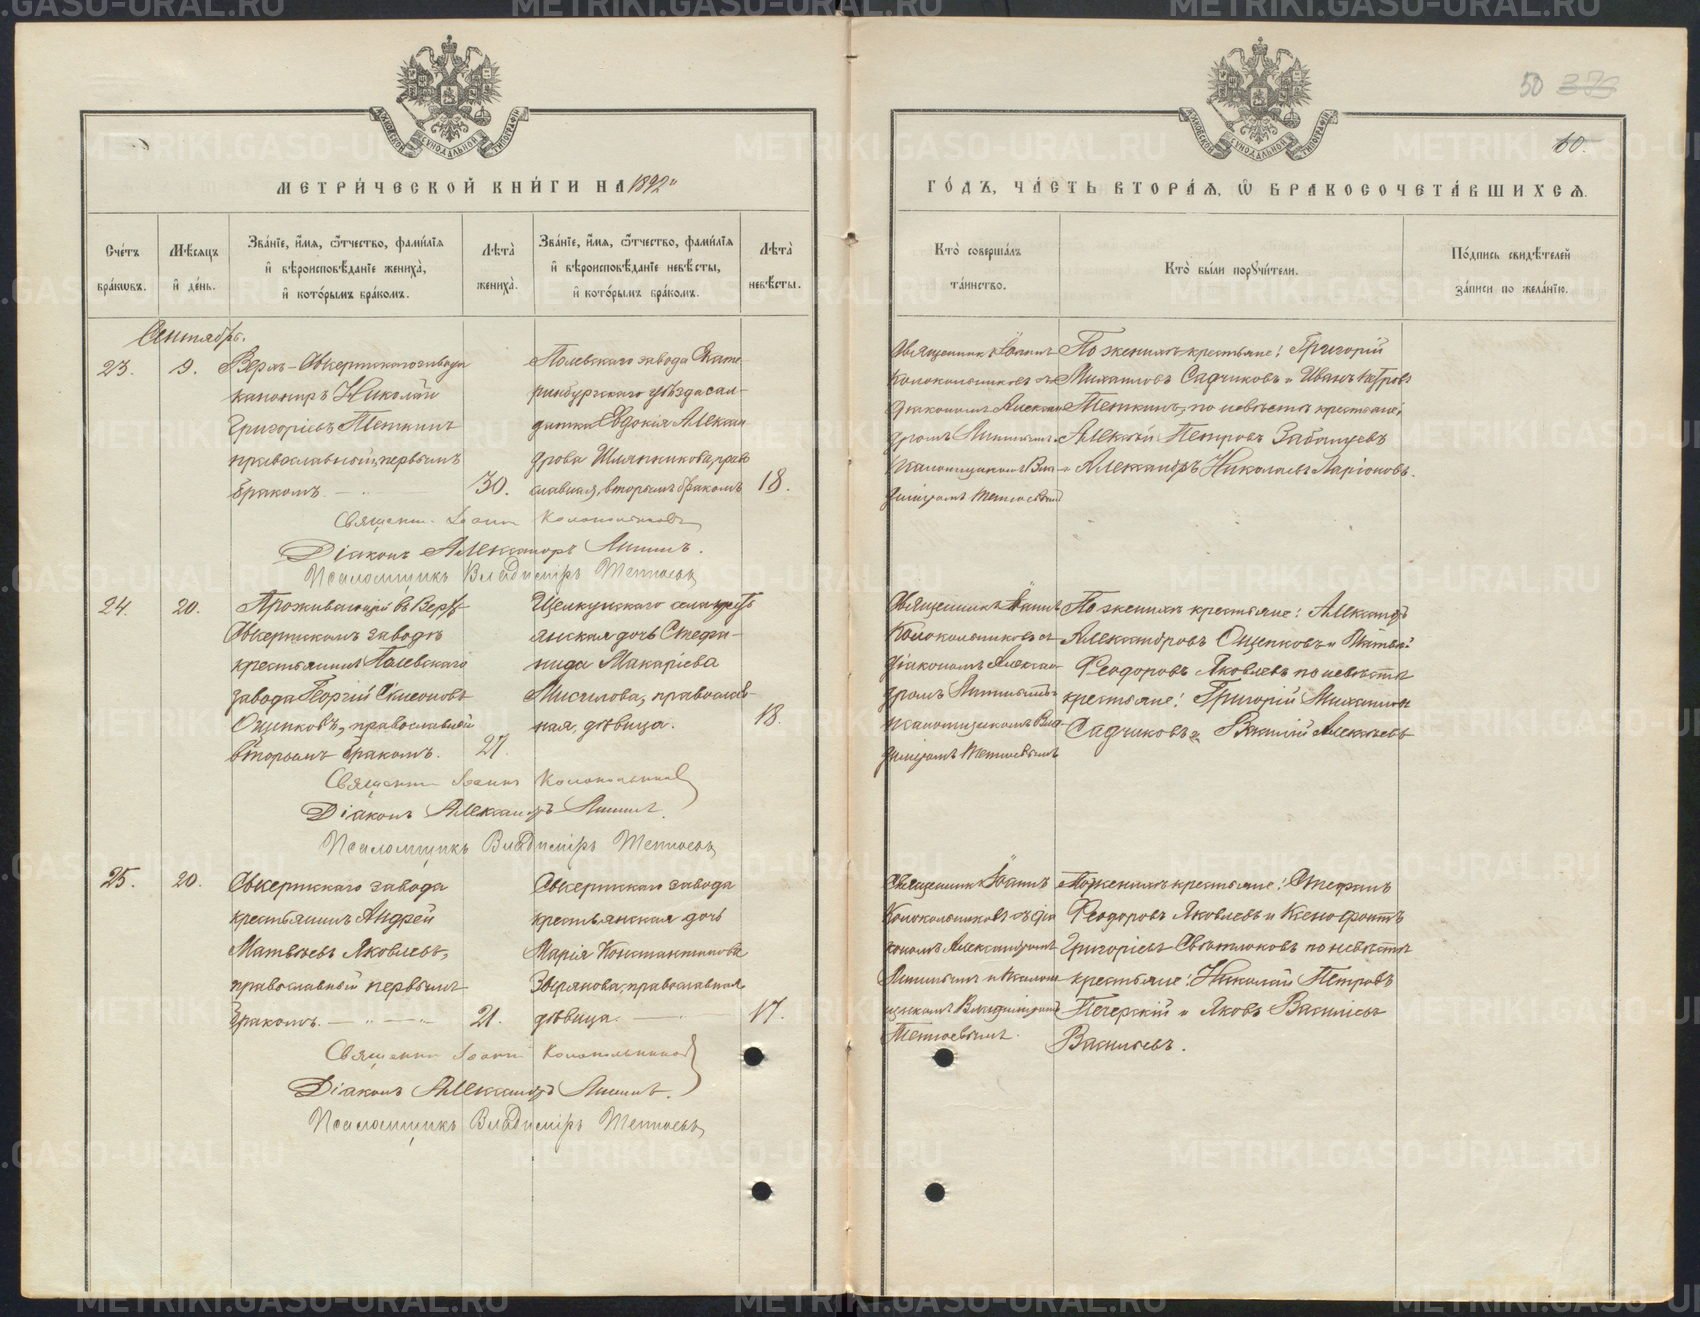 50 373
60.
МЕТРИЧЕСКОЙ КНИГИ НА 1892
ГОДЪ, ЧАСТЬ ВТОРАЯ, Ѡ БРАКОСОЧЕТАВШИХСЯ.
Счетъ браковъ.
Мѣсяцъ и день.
Званіе, имя, отчество, фамилія
и вѣроисповѣданіе жениха,
и которымъ бракомъ.
Лѣта
жениха.
Званіе, имя, отчество, фамилія
и вѣроисповѣданіе невѣсты,
и которымъ бракомъ.
Лѣта
невѣсты.
Кто совершалъ
таинство.
Кто были поручители.
Подпись свидѣтелей
записи по желанію.
Сентябрь.
23.
9.
Верхъ-Сысертскаго завода
канониръ Николай
Григоріевъ Теткинъ
православный, первымъ
бракомъ
30.
Полевскаго завода Екате-
ринбургскаго уѣзда сол-
датка Евдокія Алексан
дрова Шляпникова, право
славная, вторымъ бракомъ
18.
Священникъ Іоаннъ
Колокольниковъ съ
діакономъ Алексан
дромъ
псаломщикомъ Вла-
диміромъ
По женихѣ крестьяне: Григорій
Михаиловъ Садчиковъ и Иванъ Петровъ
Теткинъ, по невѣстѣ крестьяне:
Алексѣй Петровъ
и Александръ Николаевъ Ларіоновъ.
Священникъ Іоаннъ Колокольниковъ
Діаконъ Александръ
Псаломщикъ Владиміръ
24.
20.
Проживающій въ Верхъ
Сысертскомъ заводѣ
крестьянинъ Полевскаго
завода Георгій Симеоновъ
Ощепковъ, православный
вторымъ бракомъ.
27.
Щелкунскаго села кресть
янская дочь Стефа-
нида Макаріева
православ-
ная, дѣвица.
18.
Священникъ Іоаннъ
Колокольниковъ съ
діакономъ Алексан-
дромъ
псаломщикомъ Вла-
диміромъ
По женихѣ крестьяне: Александръ
Александровъ Ощепковъ и Матвѣй
Феодоровъ Яковлевъ по невѣстѣ
крестьяне: Григорій Михаиловъ
Садчиковъ и Василій Алексѣевъ
Священникъ Іоаннъ Колокольниковъ
Діаконъ Александръ
Псаломщикъ Владиміръ
25.
20.
Сысертскаго завода
крестьянинъ Андрей
Матвѣевъ Яковлевъ,
православный первымъ
бракомъ.
21.
Сысертскаго завода
крестьянская дочь
Марія Константинова
православная
дѣвица.
17.
Священникъ Іоаннъ
Колокольниковъ съ діа
кономъ Александромъ
и псалом
щикомъ Владиміромъ
По женихѣ крестьяне: Стефанъ
Феодоровъ Яковлевъ и Ксенофонтъ
Григоріевъ Свѣтлоковъ по невѣстѣ
крестьяне: Николай Петровъ
Печерскій и Яковъ Василіевъ
Василіевъ.
Священникъ Іоаннъ Колокольниковъ
Діаконъ Александръ
Псаломщикъ Владиміръ
METRIKI.GASO-URAL.RU